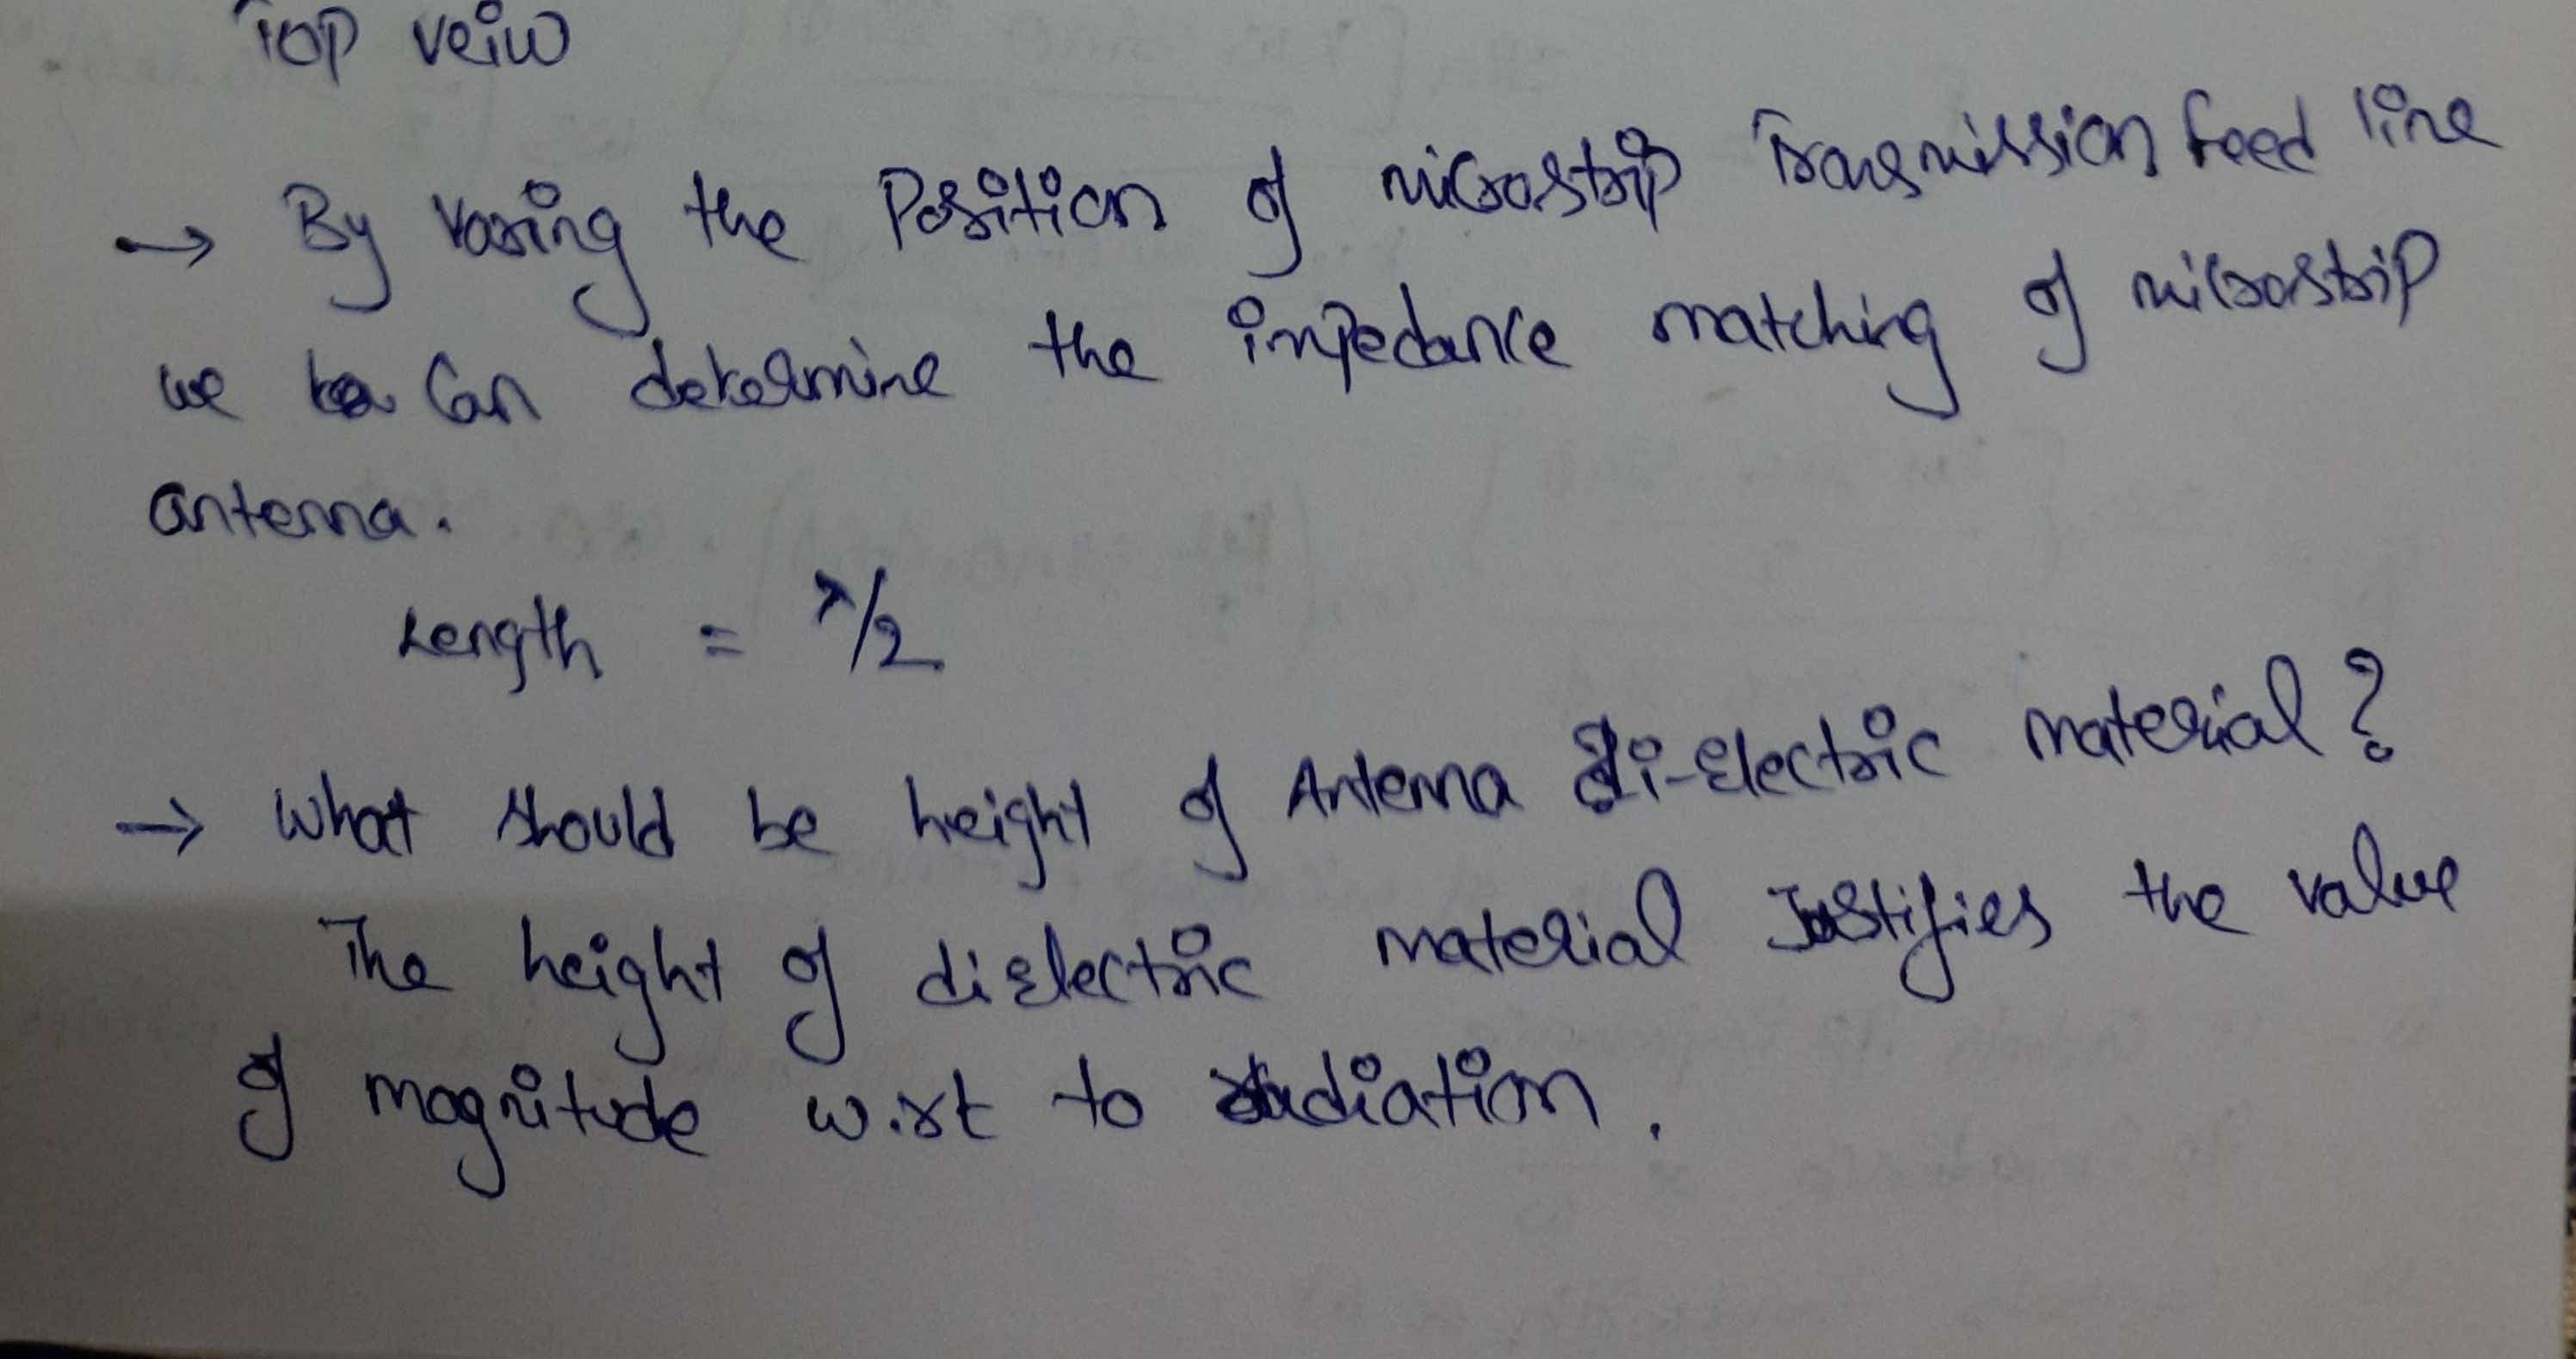 Top veiw
→ By varing the Position of microstrip Transmission feed line
we can determine the impedance matching of microstrip
antenna.
Length = λ/2
→ What should be height of Antenna di-electric material?
The height of dielectric material Justifies the value
of magnitude w.rt to radiation.